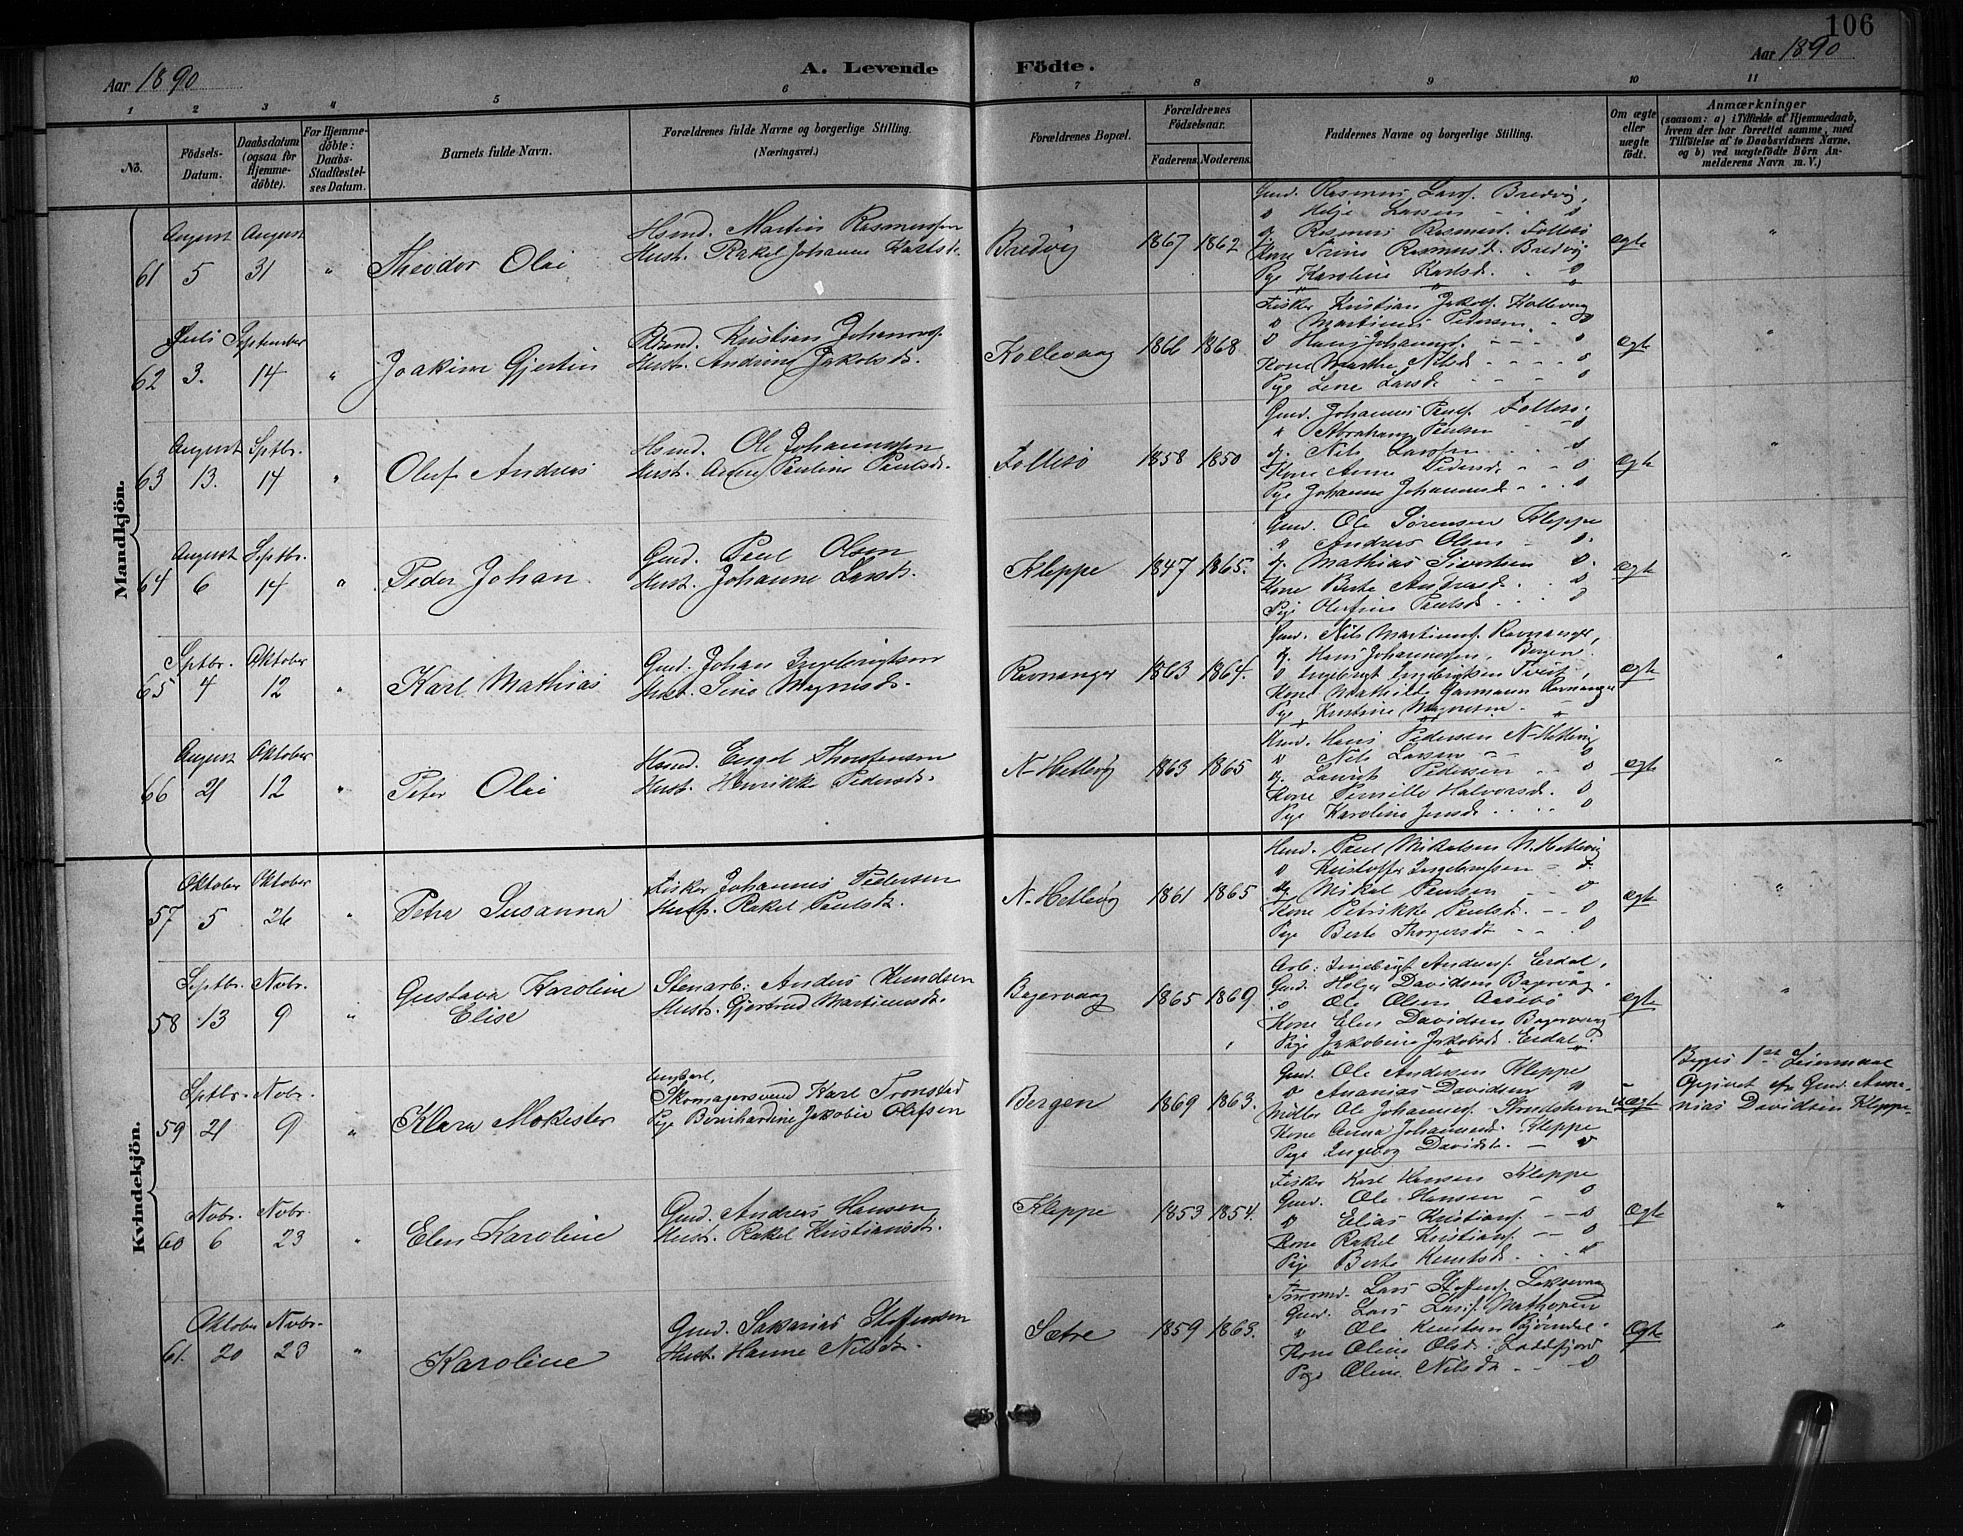 106
Aar 1890
A. Levende Fødte.
Aar 1890
1 2 3 4 5 6 7 8 9 10 11
No.
Födsels-Datum.
Daabsdatum (ogsaa før Hjemme-døbte).
For Hjemme-døbte: Daabs-Stadfæstel-ses Datum.
Barnets fulde Navn.
Forældrenes fulde Navne og borgerlige Stilling. (Næringsvei.)
Forældrenes Bopæl.
Forældrenes Fødselsaar.
Faderens. Moderens.
Faddernes Navne og borgerlige Stilling.
Om ægte eller uægte født.
Anmærkninger
(saasom: a) i Tilfælde af Hjemmedaab,
hvem der har forrettet samme, med
Tilføielse af to Daabsvidners Navne,
og b) ved uægtefødte Børn An-
melderens Navn m. V.)
Mandkjön.
61 August 5 August 31 " Theodor Olai
Hsmd. Martin Rasmussen
Hust. Rakel Johanne Karlsd.
Bredvig 1867 1862 ægte "
Gmd. Rasmus Larss. Bredvig,
" Helje Larsen - "
Kone Trine Rasmusd. Bredvig
Pige Karoline Karlsd. "
62 Juli 3. September 14 " Joakim Gjertin
Kristian Johanness.
Hust. Andrine Jakobsd.
Kollevaag 1866 1868 ægte "
Fisker Kristian Jakobs. Kollevaag
" Martinus Pedersen "
" Hans Johanness. "
Kone Marthe Nilsd. "
Pige Lene Larsd. "
63 August 13. Septbr. 14 " Oluf Andreas
Hsmd. Ole Johannessen
Hust. Pauline Paulsd.
Follesø 1858 1850 ægte "
Gmd. Johannes Follesø.
" Abraham Paulsen "
Nils Larssen "
Kone Anne Pedersd. "
Pige Johanne Johannesd. "
64 August 6 Septbr. 14 " Peder Johan
Gmd. Paul Olsen
Hust. Johanne Larsd.
Kleppe 1847 1865. ægte "
Gmd. Ole Sørensen Kleppe
" Andreas Olsen "
Mathias Sivertsen "
Kone Berte Andersd. "
Pige Olertine Paulsd. "
65 Septbr. 4 Oktober 12 " Karl Mathias
Gmd. Johan Ingebrigtsen
Hust. Sine Magnusd.
Ravnanger 1863 1864. ægte "
Gmd. Nils Martinuss. Ravnanger,
Hans Johannessen, Bergen
" Ingebrigt Ingebrigtsen
Kone Mathilde Garmann Ravnanger
Pige Kristine Magnusen "
66 August 21 Oktober 12 " Peter Olai
Hsmd. Engel Thorstensen
Hust. Henrikke Pedersd.
N-Hetlevig 1863 1865 ægte "
Hans Pedersen N-Hetlevig
" Nils Larsen "
Laurits Pedersen "
Kone Pernille Halvorsd. "
Pige Karoline Jensd. "
Kvindekjön.
57 Oktober 5 Oktober 26 " Petra Susanna
Fisker Johannes Pedersen
Hust. Rakel Paulsd.
N-Hetlevig 1861 1865 ægte "
Paul Mikalsen N. Hetlevig
" Kristoffer "
Mikal Paulsen "
Kone Petrikke Paulsd. "
Pige Berte Thorgersd. "
58 Septbr. 13 Novbr. 9 " Gustava Karoline Elise
Stenarb: Anders Knudsen
Hust. Gjertrud Martinusd.
Bøgervaag 1865 1869 ægte "
Arb: Ingebrigt Anderss. Erdal,
Gmd. Helge Davidsen
" Ole Olsen
Kone Elen Davidsen
Pige Jakobine Jakobsd. Erdal
59 Septbr. 21 Novbr. 9 " Klara Mokester
Ungkarl,
Skomagersvend Karl Tronstad
Pige Bernhardine Jakobia Olefsen
Bergen 1869 1863. uægte
Gmd. Ole Andersen Kleppe
" Ananias Davidsen "
Ole Johanness.
Kone Anna Johannesd. Kleppe
Pige Ingeborg Davidsd. "
Begges 1ste Leiermaal
Opgivet af Gmd. Ana-
nias Davidsen Kleppe
60 Novbr. 6 Novbr. 23 " Elen Karoline
Gmd. Andreas Hansen
Hust. Rakel Kristiansd.
Kleppe 1853 1854. ægte "
Fisker Karl Hansen Kleppe
Gmd. Ole Hansen "
" Elias Kristians. "
Kone Rakel Kristians. "
Pige Berte Knutsd. "
61. Oktober 20 Novbr. 23 " Karoline
Gmd. Sakarias Steffensen
Hust. Hanne Nilsd.
Sætre 1859 1863. ægte "
Lars Steffens. Laksevaag
Gmd. Lars Larss. Mathopen
" Ole Knutsen Bjørndal
Kone Oline Olsd. Loddefjord
Pige Oline Nilsd. "